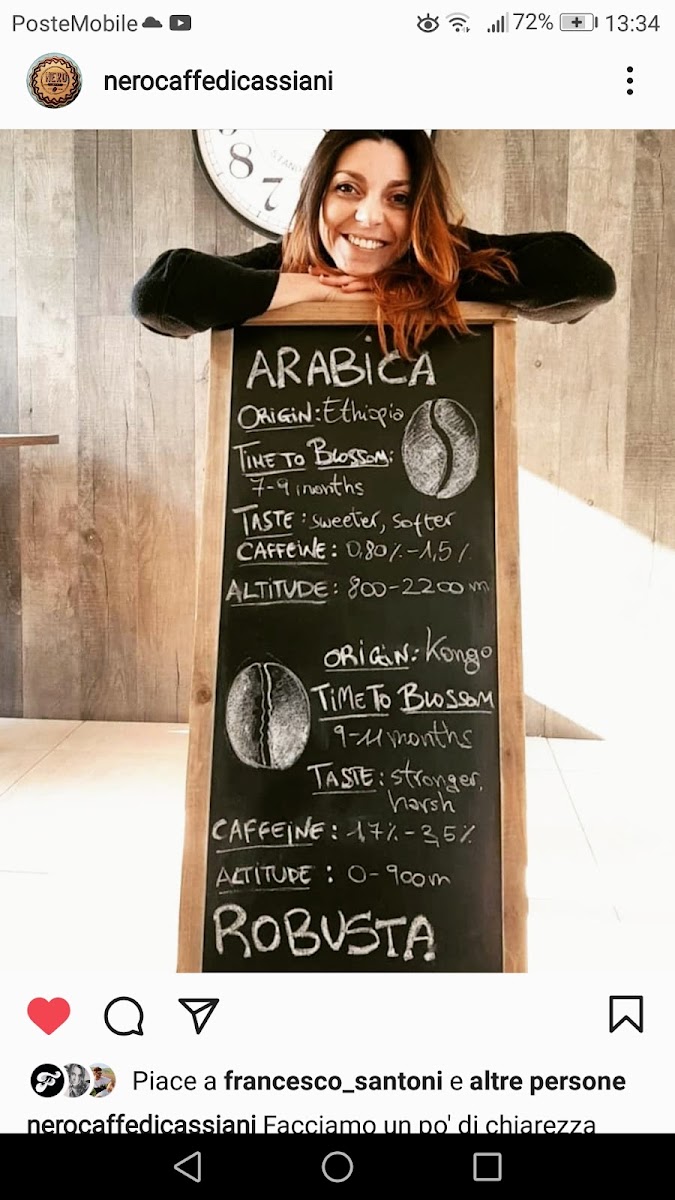 PosteMobile
72%
13:34
NERO
nerocaffedicassiani
8
7
ARABiCA
ORIGIN: Ethiopia
TIME TO BLOSSOM:
7-9 months
TASTE: sweeter, softer
CAFFEiNE: 0,80%-1,5%
ALTITUDE: 800-2200 m
ORiGiN: Kongo
TiME TO BLOSSOM
9-11 months
TASTE: stronger,
harsh
CAFFEiNE: 1,7%-3,5%
ALTITUDE: 0-900m
ROBUSTA
Piace a francesco_santoni e altre persone
nerocaffedicassiani Facciamo un po' di chiarezza